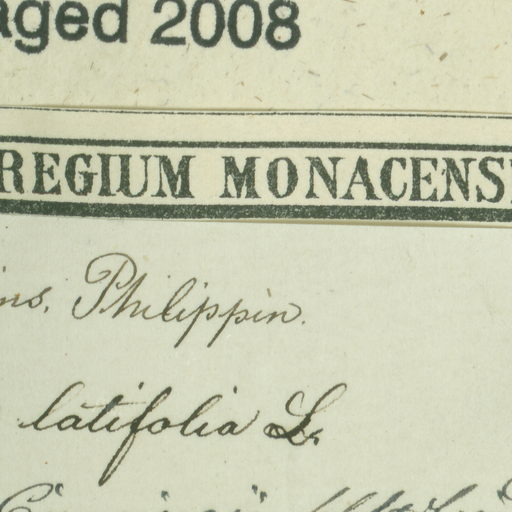 aged 2008
REGIUM MONACENS
ins. Philippin.
latifolia L.